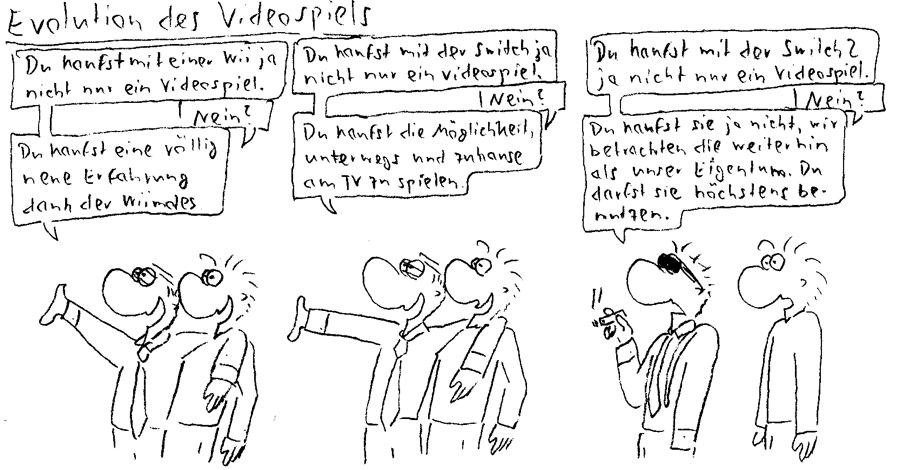 Evolution des Videospiels
Du kaufst mit einer Wii ja
nicht nur ein Videospiel.
Nein?
Du kaufst eine völlig
neue Erfahrung
dank der Wiimotes
Du kaufst mit der Switch ja
nicht nur ein Videospiel.
Nein?
Du kaufst die Möglichkeit,
unterwegs und zuhause
am TV zu spielen.
Du kaufst mit der Switch 2
ja nicht nur ein Videospiel.
Nein?
Du kaufst sie ja nicht, wir
betrachten die weiterhin
als unser Eigentum. Du
darfst sie höchstens be-
nutzen.